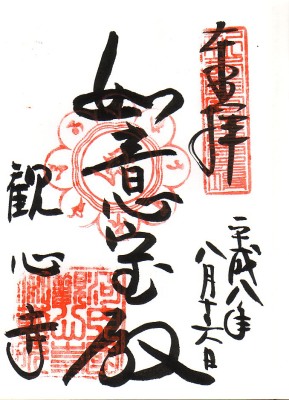 奉拝
平成八年
八月十六日
如意宝殿
観心寺